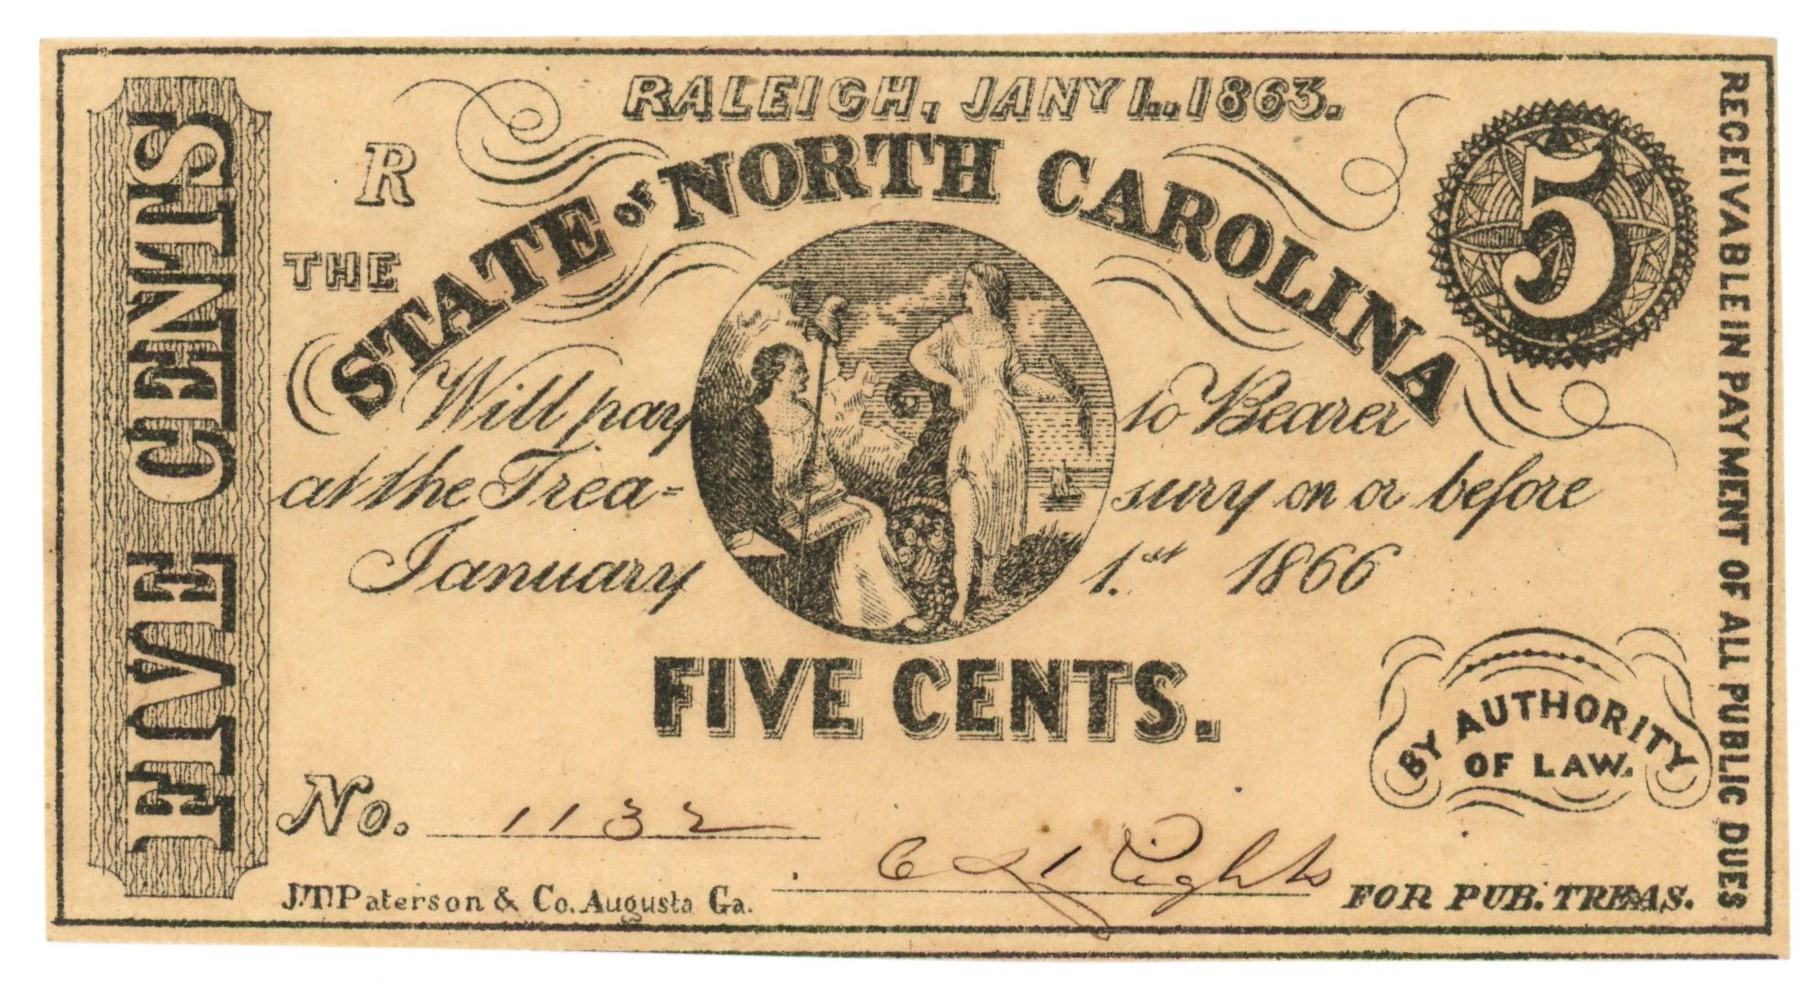 RALEIGH, JANY 1.. 1863.
R
THE
STATE OF NORTH CAROLINA
5
Will pay to Bearer
at the Trea= sury on or before
January 1.st 1866
FIVE CENTS.
BY AUTHORITY
OF LAW.
No. 1132
J.T. Paterson & Co. Augusta Ga.
FOR PUB. TREAS.
FIVE CENTS
RECEIVABLE IN PAYMENT OF ALL PUBLIC DUES